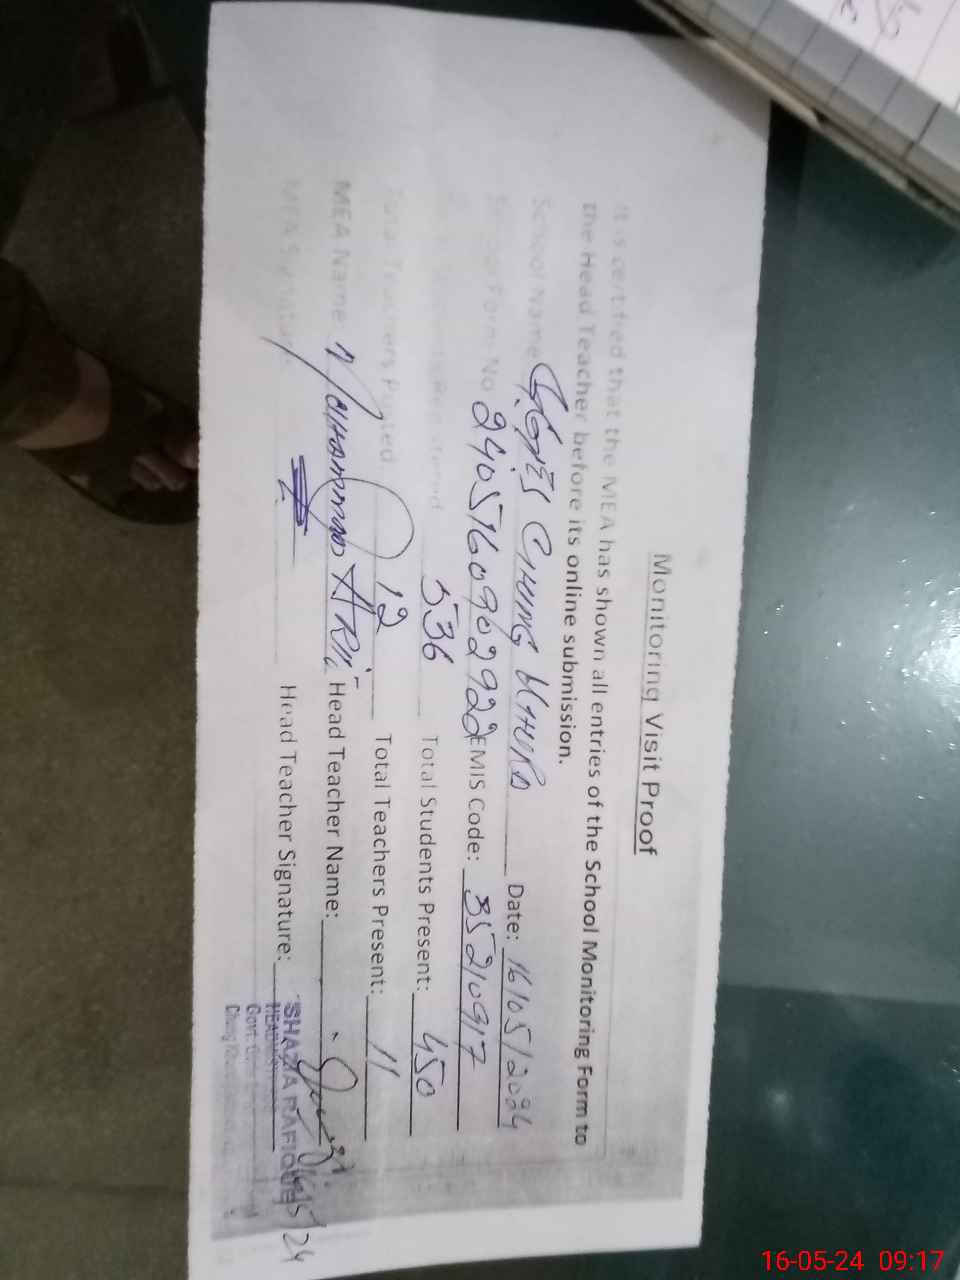 Monitoring Visit Proof
It is certified that the MEA has shown all entries of the School Monitoring Form to
the Head Teacher before its online submission.
School Name CHUNG KHURD Date: 16/05/2024
Form No 2405160902922 EMIS Code: 35210917
536 Total Students Present: 450
Total Teachers Posted 12 Total Teachers Present: 11
MEA Name: Head Teacher Name:
MEA Signature Head Teacher Signature:
SHAZIA RAFIQUE
Govt. Girls
16/5/24
16-05-24 09:17